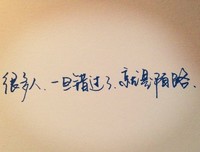 很多人、一旦错过了、就是陌路.